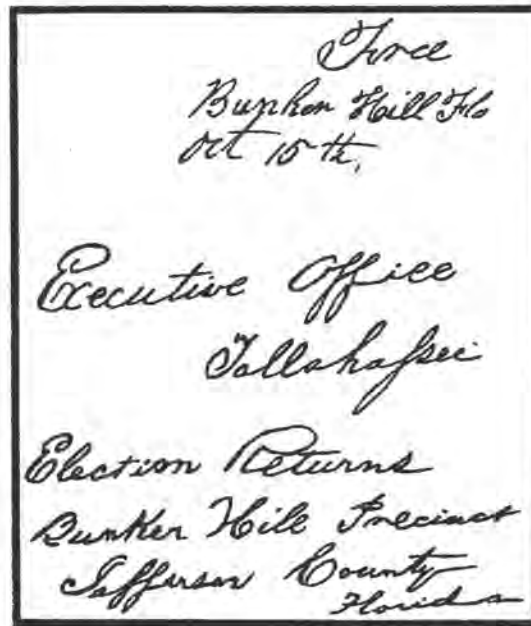 Free
Bunker Hill Fla
Oct 15th.
Executive Office
Tallahassee
Election Returns
Bunker Hill Precinct
Jefferson County
Florida